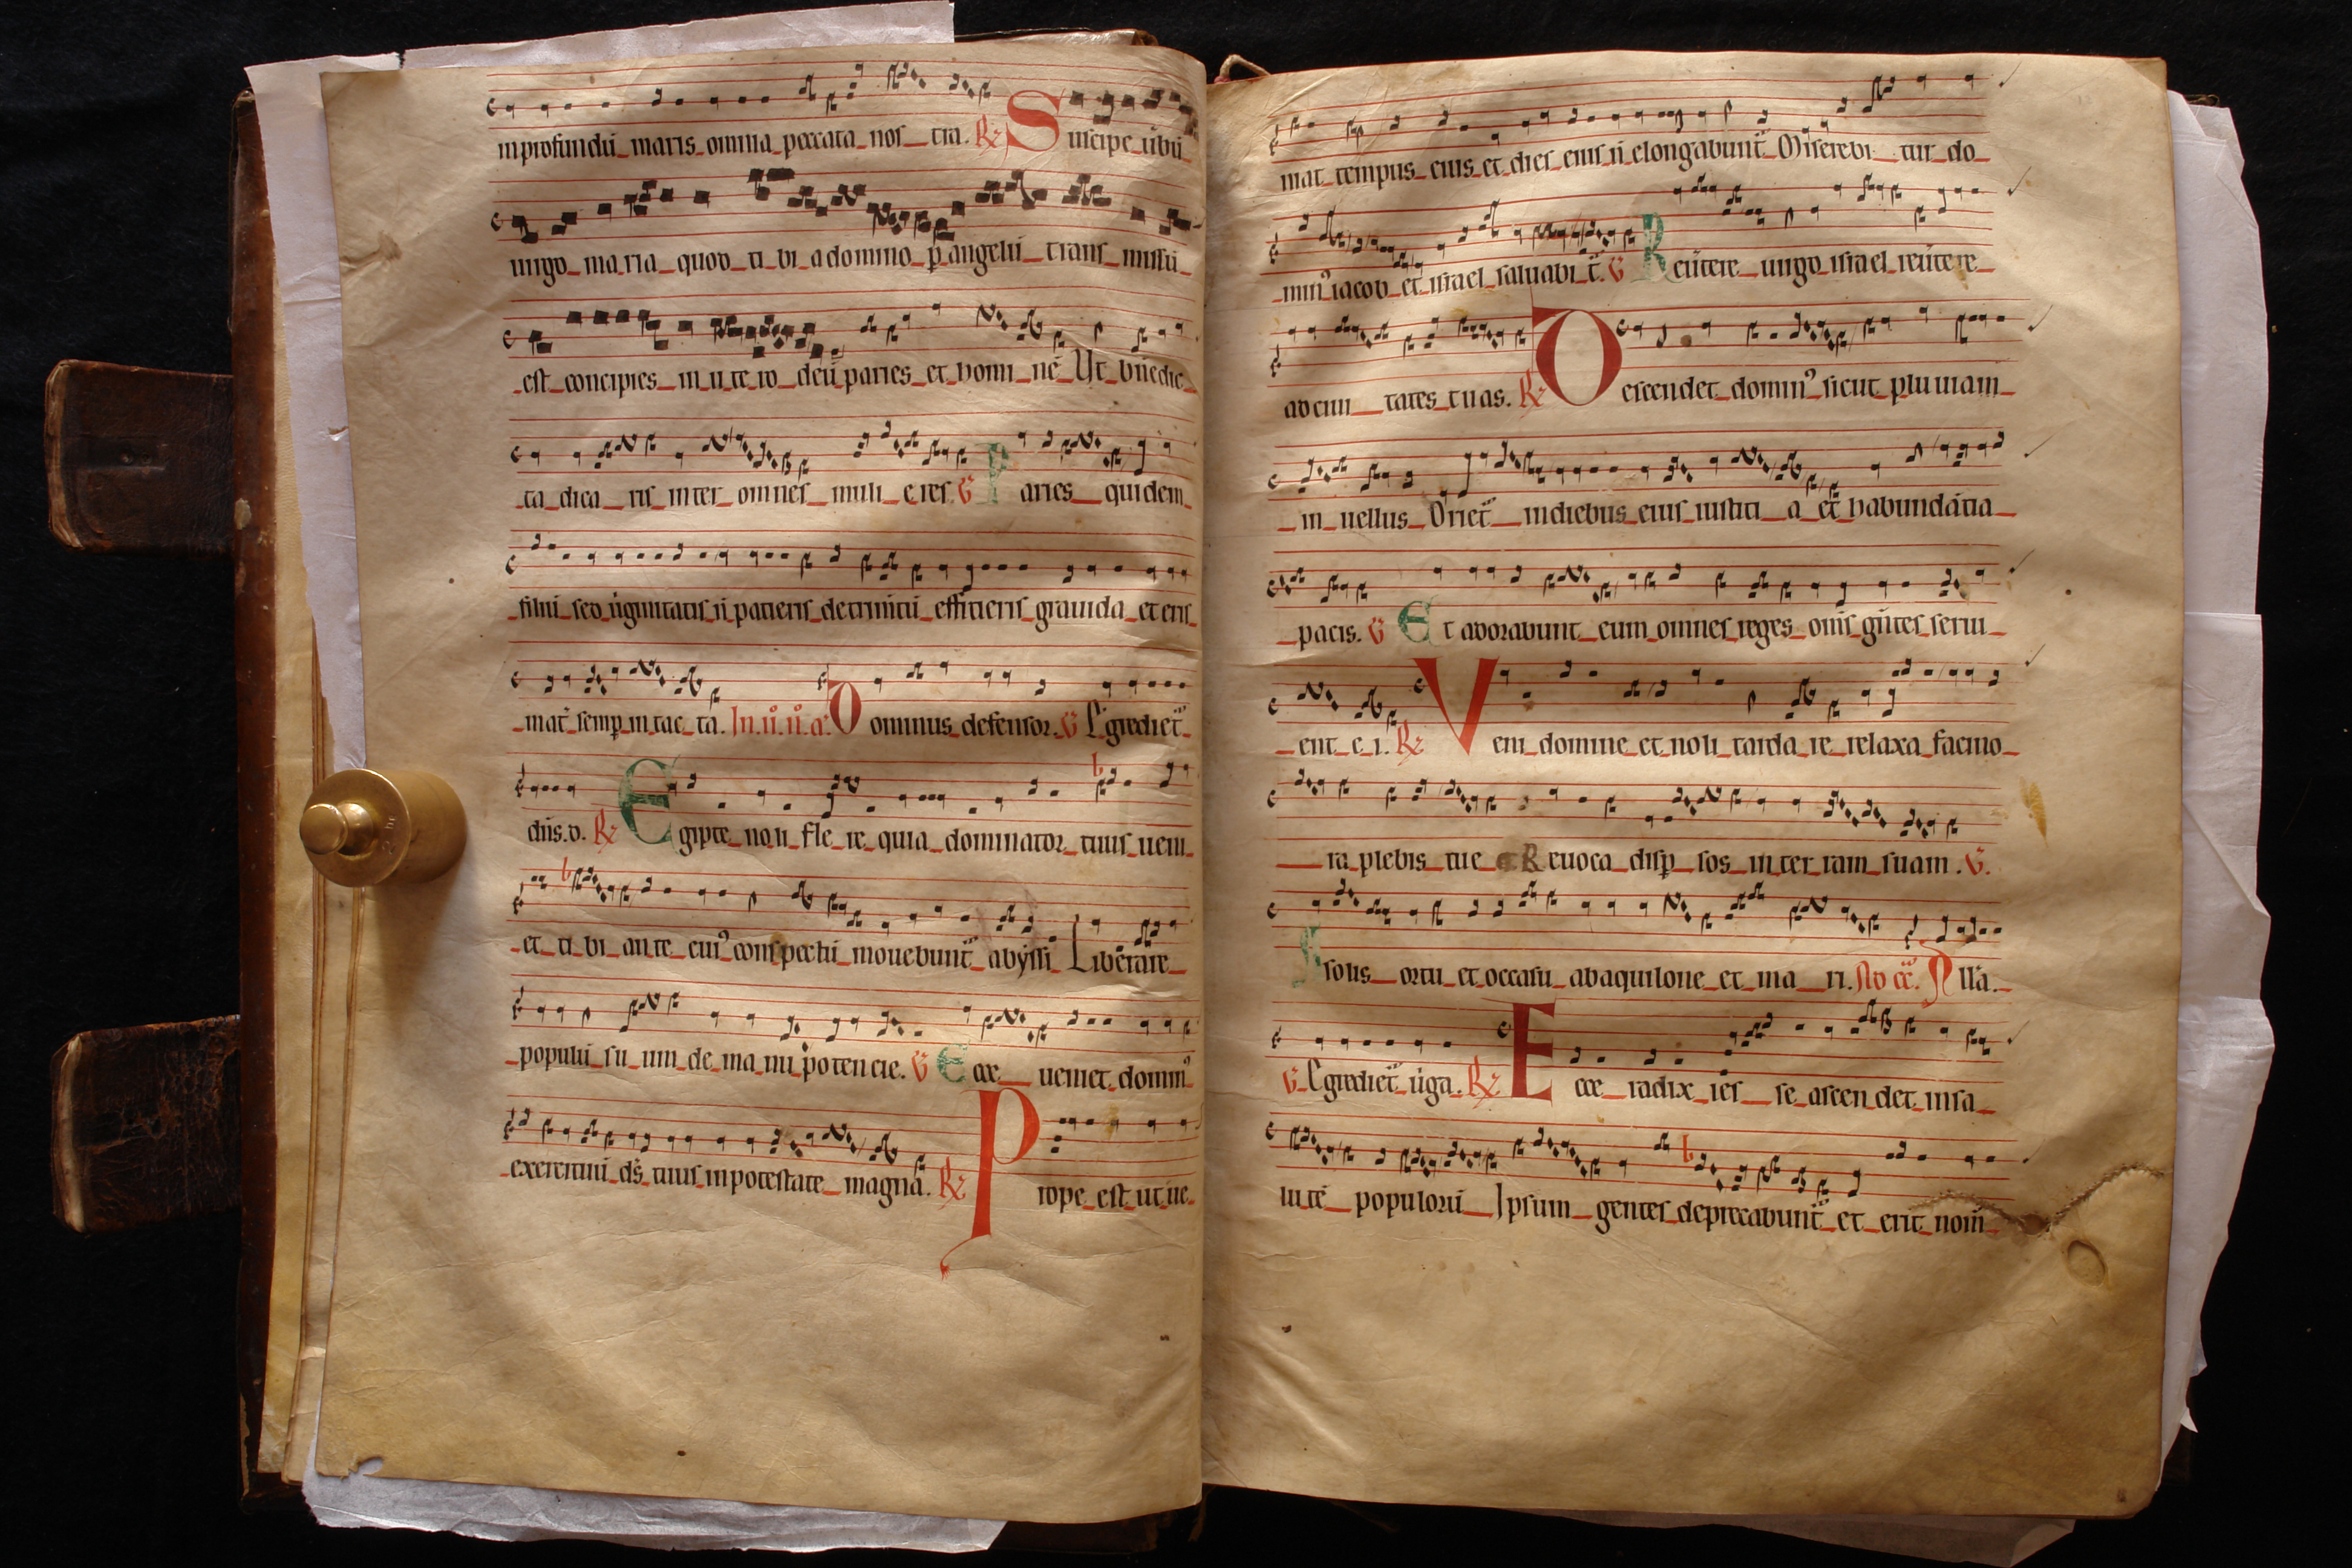 in profundū maris omnia peccata nostra. R℣ Suscipe ūbū
uirgo maria quod tibi a domino p̲ angelū transmissū
est concipies in utero deū paries et hominē Ut bn̄edic
ta dicaris inter omnes mulieres V̄ Paries quidem
filiū sed ūginitatis ñ patieris detrimētū efficieris grauida et eris
mat̄ semp̲ intacta. In .ii. ñ. a. Dominus defensor. V̄ Egrediet̄
dn̄s. d. R℣ Egipte noli flere quia dominator tuus ueni
et tibi ante cui⁹ conspectū mouebunt̄ abyssi Liberare
populū suum de manu potencie. V̄ Ecce ueniet domin⁹
exercituū ds̄ tuus in potestate magna. R℣ Prope est ut ue
niat tempus eius et dies eius ñ elongabunt̄ Miserebitur do
min⁹ iacob et israel saluabit̄. V̄ Reūtere uirgo israel reūtere
ad ciuitates tuas. R℣ Descendet domin⁹ sicut pluuiam
in uellus Oriet̄ in diebus eius iusticia et habundātia
pacis. V̄ Et adorabunt eum omnes reges om̄s gn̄tes serui
ent ei. R℣ Veni domine et noli tardare relaxa facino
ra plebis tue Reuoca disp̲sos in terram suam. V̄.
A solis ortu et occasu ab aquilone et mari. Alla.
V̄ Egrediet̄ ūga. R℣ Ecce radix iesse ascendet in sa
lutē populorū Ipsum gentes deprecabunt̄ et erit nom̄